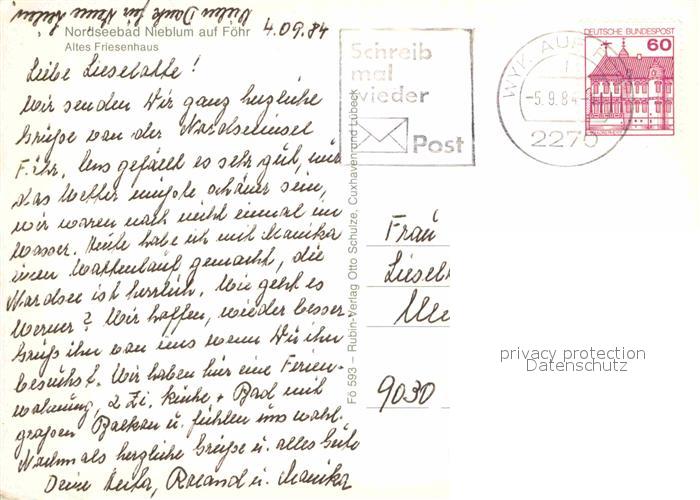 Vielen Dank für Deine
Nordseebad Nieblum auf Föhr
Altes Friesenhaus
4.09.84
Liebe Lieselotte!
Wir senden Dir ganz herzliche
Grüße von der Nordseeinsel
Föhr. Uns gefällt es sehr gut, nur
das Wetter müßte schöner sein,
wir waren noch nicht einmal im
Wasser. Heute habe ich mit Monika
einen Wattenlauf gemacht, die
Nordsee ist herrlich. Wie geht es
Werner? Wir hoffen, wieder besser.
Grüß ihn von uns wenn Du ihn
besuchst. Wir haben hier eine Ferien-
wohnung, 2 Zi. Küche + Bad mit
großen Balkon u. fühlen uns wohl.
Nochmals herzliche Grüße u. alles Gute
Deine Reita, Roland u. Monika
Fö 593 – Rubin-Verlag Otto Schulze, Cuxhaven und Lübeck
Schreib
mal
wieder
Post
WYK AUF F
-5.9.84-
2270
DEUTSCHE BUNDESPOST
60
Frau
Liesel
9030
privacy protection
Datenschutz